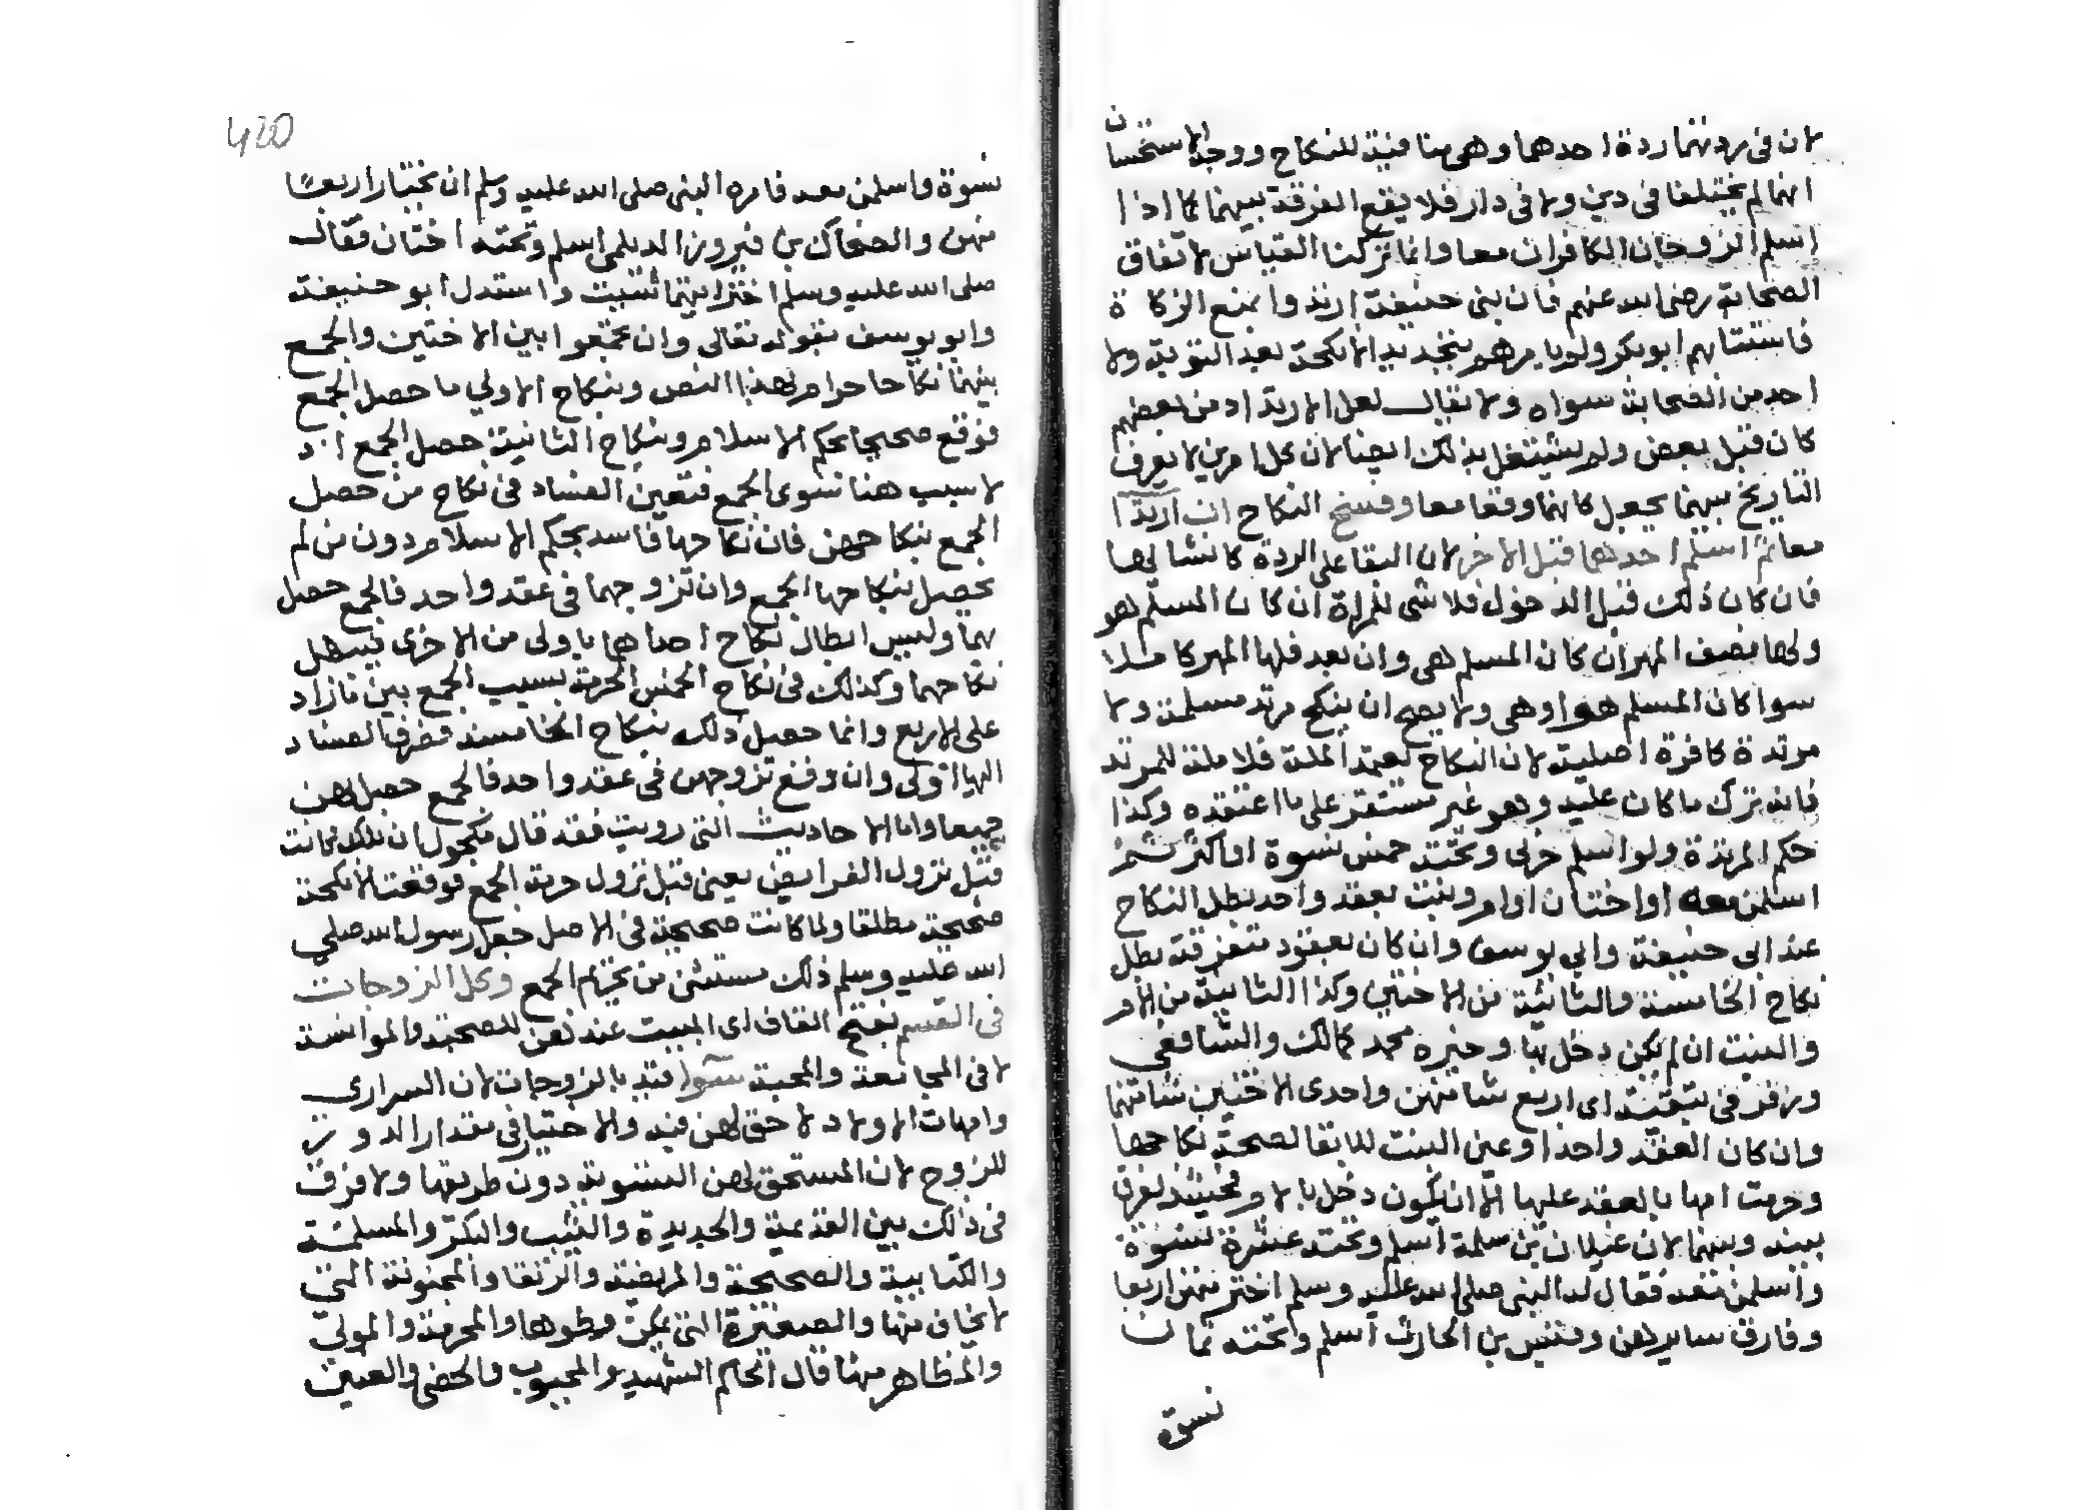 لان فى ردتهما ردة احدهما وهى منافية للنكاح ووجه الاستحسان
انهما لم يختلفا فى دين ولا فى دار فلا يقع الفرقة بينهما كما اذا
اسلم الزوجان الكافران معا وانما تركنا القياس لاتفاق
الصحابة رضى الله عنهم فان بنى حنيفة ارتدوا بمنع الزكاة
فاستتابهم ابو بكر ولم يامرهم بتجديد الانكحة بعد التوبة ولا
احد من الصحابة سواه ولا يقال لعل الارتداد من بعضهم
كان قبل بعض ولم يشتغل بذلك ايضا لان كل امرين لا يعرف
التاريخ بينهما يجعل كانهما وقعا معا وفسخ النكاح ان ارتدا
معا ثم اسلم احدهما قبل الاخر لان البقا على الردة كانشائها
فان كان ذلك قبل الدخول فلا شى للمراة ان كان المسلم هو
ولها نصف المهر ان كان المسلم هى وان بعد فلها المهر كاملا
سوا كان المسلم هو او هى ولا يصح ان ينكح مرتد مسلمة ولا
مرتدة كافرة اصلية لان النكاح يعتمد الملة فلا ملة للمرتد
فانه ترك ما كان عليه وهو غير مستقر على ما اعتقده وكذا
حكم المرتدة ولو اسلم حربى وتحته خمس نسوة او اكثر ثم
اسلمن معه او اختان او ام وبنت بعقد واحد بطل النكاح
عند ابى حنيفة وابى يوسف وان كان بعقود متفرقة بطل
نكاح الخامسة والثانية من الاختين وكذا الثانية من الام
والبنت ان لم يكن دخل بها وخيره محمد كمالك والشافعى
وزفر فى تبقية اى اربع شا منهن واحدى الاختين شا منهما
وان كان العقد واحدا وعين البنت للابقا لصحة نكاحها
وحرمت امها بالعقد عليها الا ان يكون دخل بالام فحينئذ يفرق
بينه وبينهما لان غيلان بن سلمة اسلم وتحته عشرة نسوة
واسلمن معه فقال له النبى صلى الله عليه وسلم اختر منهن اربعا
وفارق سايرهن وقيس بن الحارث اسلم وتحته ثمان
نسوة
420
نسوة واسلمن معه فامره النبى صلى الله عليه وسلم ان يختار اربعا
منهن والضحاك بن فيروز الديلمى اسلم وتحته اختان فقال
صلى الله عليه وسلم اختر ايتهما شيت واستدل ابو حنيفة
وابو يوسف بقوله تعالى وان تجمعوا بين الاختين والجمع
بينهما نكاحا حرام لهذا النص وبنكاح الاولي ما حصل الجمع
فوقع صحيحا بحكم الاسلام وبنكاح الثانية حصل الجمع اذ
لا سبب هنا سوى الجمع فتعين الفساد فى نكاح من حصل
الجمع بنكاحهن فان نكاحها فاسد بحكم الاسلام دون من لم
يحصل بنكاحها الجمع وان تزوجهما فى عقد واحد فالجمع حصل
بهما وليس ابطال نكاح احداهما باولى من الاخرى فيبطل
نكاحهما وكذلك فى نكاح الخمس الحرمة بسبب الجمع بين ما زاد
على الاربع وانما حصل ذلك بنكاح الخامسة فصرف الفساد
اليها اولى وان وقع تزوجهن فى عقد واحد فالجمع حصل بهن
جميعا واما الاحاديث التى رويت فقد قال مكحول ان تلك كانت
قبل نزول الفرايض يعنى قبل نزول حرمة الجمع فوقعت الانكحة
صحيحة مطلقا ولما كانت صحيحة فى الاصل جعل رسول الله صلى
الله عليه وسلم ذلك مستثنى من تحريم الجمع وكل الزوجات
فى القسم بفتح القاف اى المبيت عندهن للصحبة والموانسة
لا فى المجامعة والمحبة سوا قيد بالزوجات لان السرارى
وامهات الاولاد لا حق لهن فيه والاختيار فى مقدار الدور
للزوج لان المستحق لهن التسوية دون طريقها ولا فرق
فى ذلك بين القديمة والجديدة والثيب والبكر والمسلمة
والكتابية والصحيحة والمريضة والرتقا والمجنونة التى
لا يخاف منها والصغيرة التى يمكن وطوها والمحرمة والمولى
والمظاهر منها قال الحاكم الشهيد والمجبوب والخصى والعنين